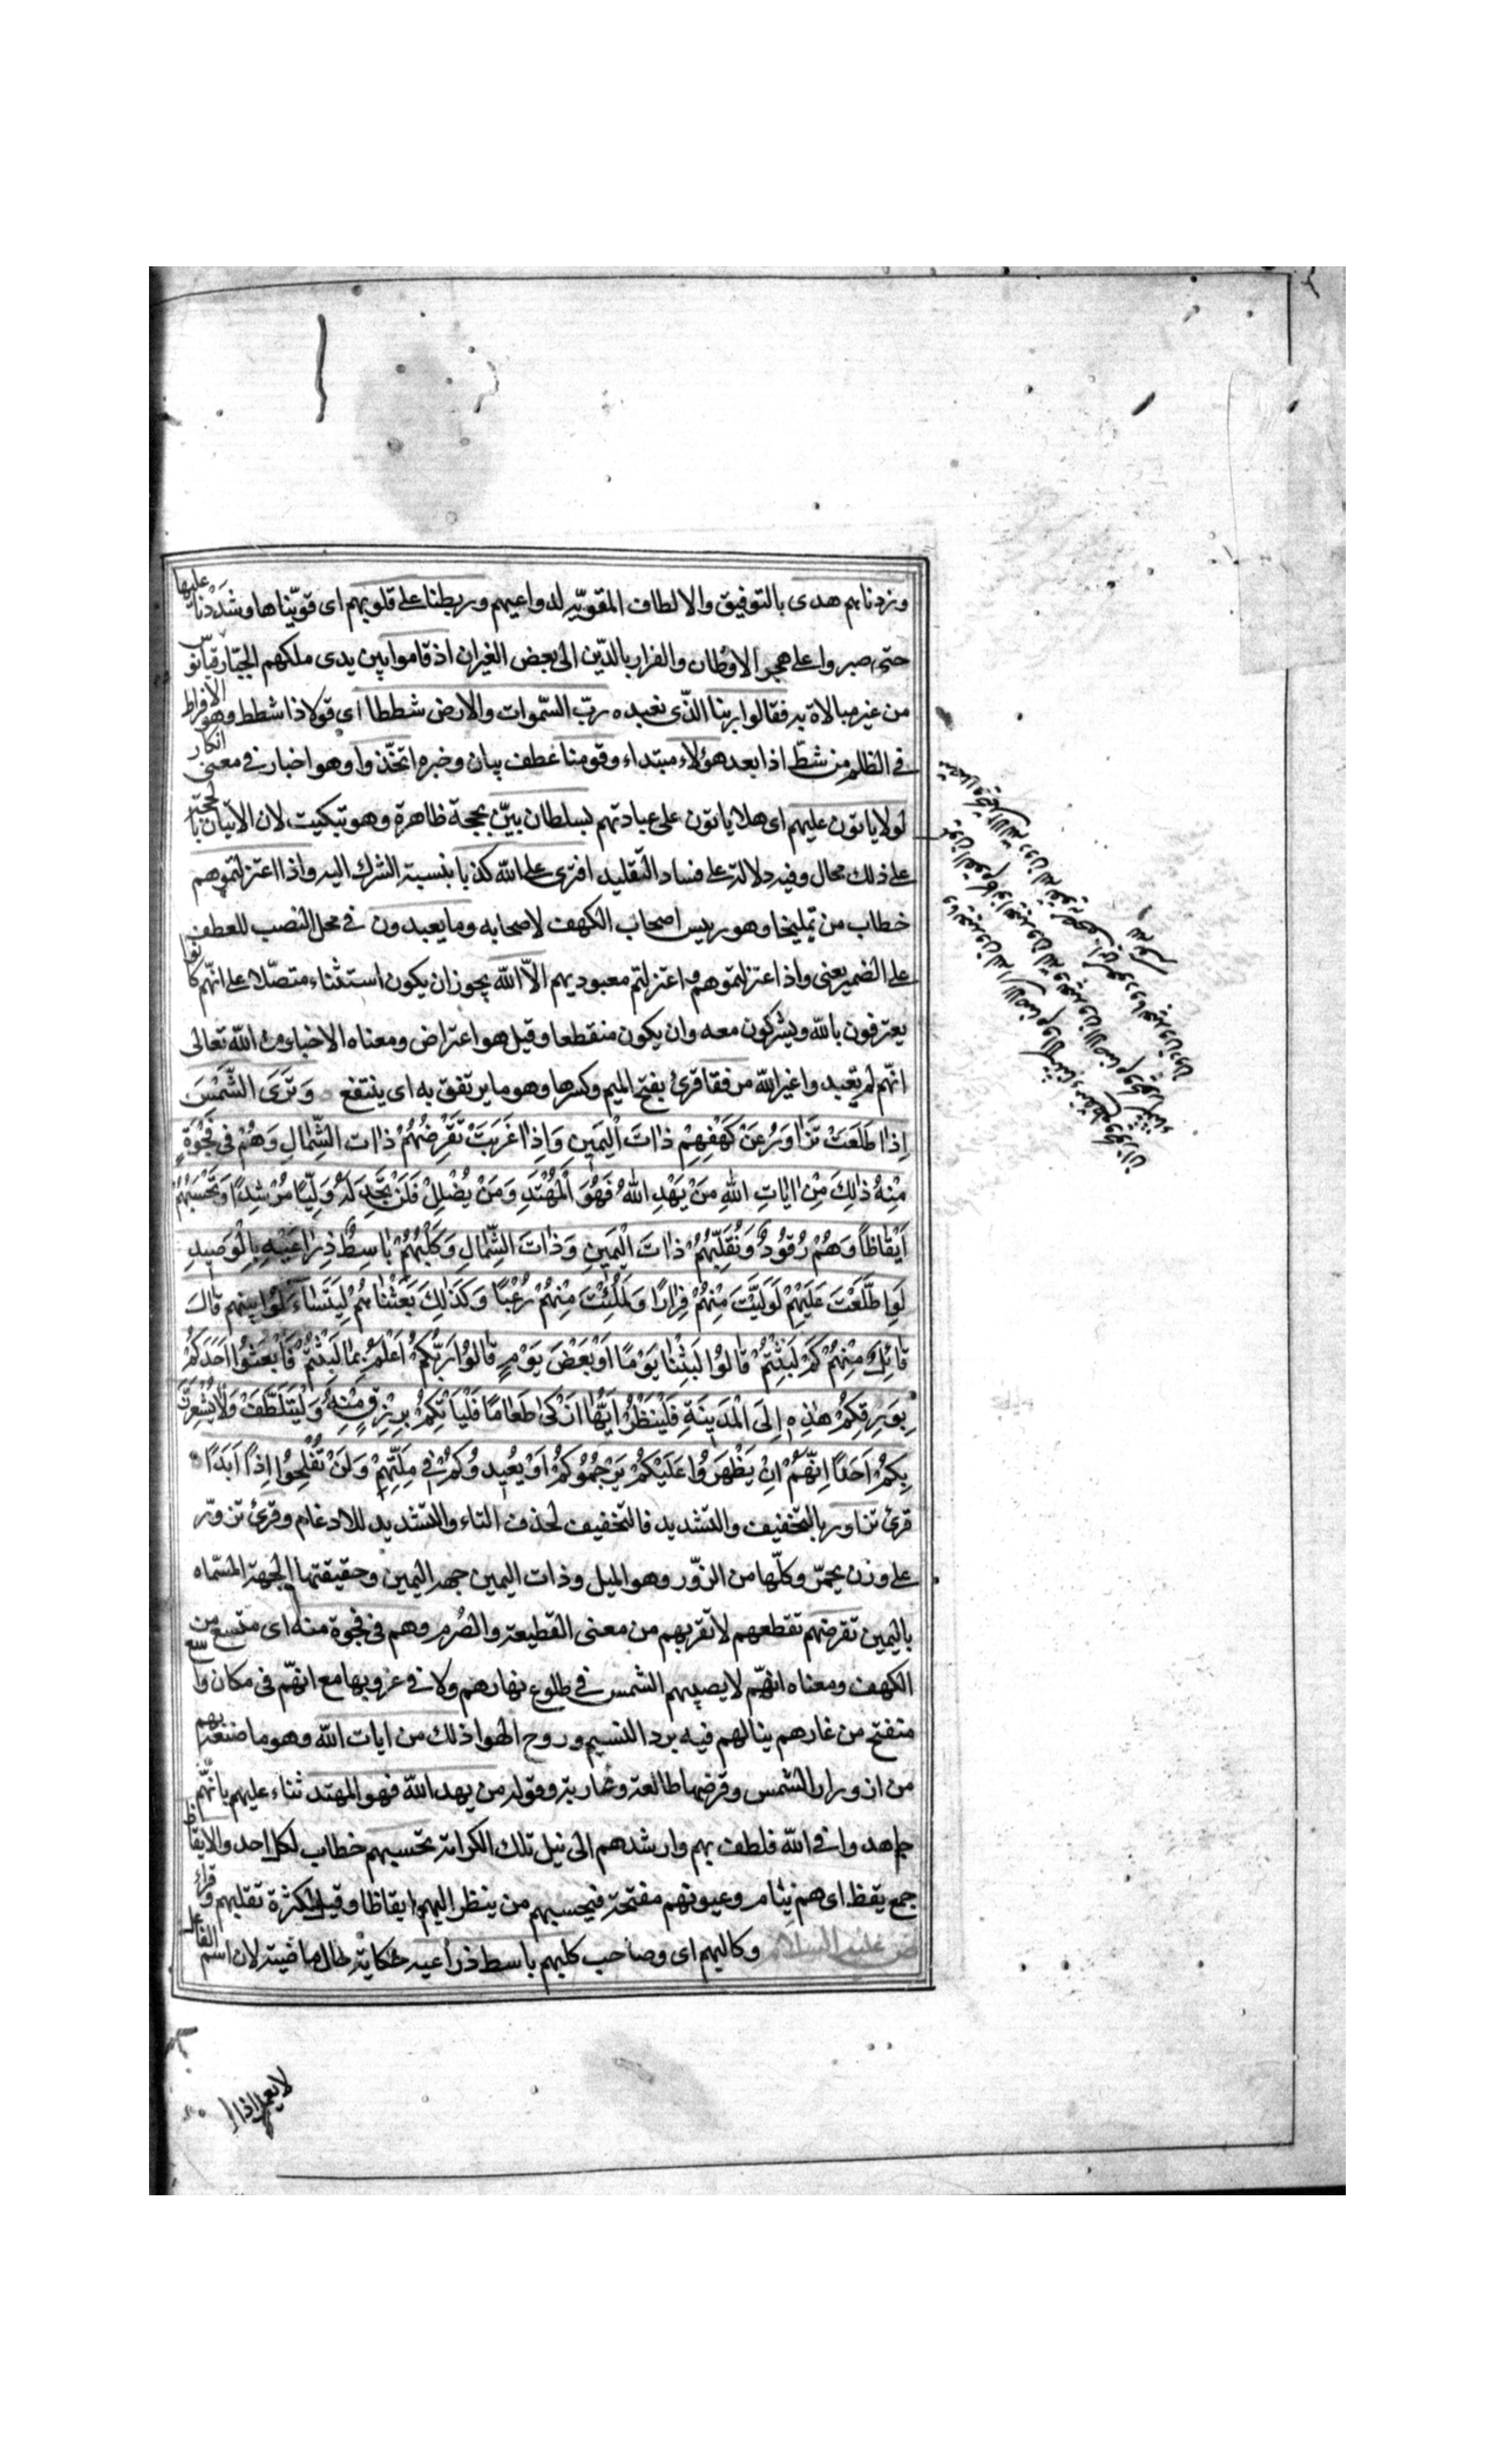 وزدناهم هدى بالتوفيق والالطاف المقويّه لدواعيهم وربطنا على قلوبهم اى قوّيناها وشدّدنا عليها
حتى صبروا على هجر الاوطان والفرار بالدّين الى بعض الغيران اذ قاموا بين يدى ملكهم الجبّار دقيانوس
من غير مبالاة به فقالوا ربنا الذّى نعبده ربّ السّموات والارض شططا اى قولا ذا شطط وهو الافراط
فى الظلم من شطّ اذا بعد هؤلاء مبتداء وقومنا عطف بيان وخبره اتخّذوا وهو اخبار فى معنى انكار
لولا ياتون عليهم اى هلا ياتون على عبادتهم بسلطان بيّن بحجة ظاهرة وهو تبكيت لان الاتيان بالحجة
على ذلك محال وفيه دلالة على فساد التقليد افترى على الله كذبا بنسبة الشرك اليه واذا اعتزلتموهم
خطاب من تمليخا وهو رييس اصحاب الكهف لاصحابه وما يعبدون فى محل النصب للعطف
على الضمير يعنى واذا عتزلتموهم واعتزلتم معبوديهم الاّ الله يجوز ان يكون استثناء متصّلا على انّهم كانوا
يعترفون بالله ويشركون معه وان يكون منقطعا وقيل هو اعتراض ومعناه الاخباء من الله تعالى
انّهم لم تعبدوا غير الله مرفقا قرئ بفتح الميم وكسرها وهو ما يرتفق به اى ينتفع وَتَرَى الشَّمْسَ
اِذا طَلَعَتْ تَزاوَرُ عَنْ كَهْفِهِمْ ذاتَ الْيَمينِ وَاِذا غَرَبَتْ تَقْرِضُهُمْ ذاتَ الشِّمالِ وَهُمْ فى فَجْوَةٍ
مِنْهُ ذلِكَ مِنْ اياتِ اللهِ مَنْ يَهْدِ اللهُ فَهُوَ الْمُهْتَدِ وَمَنْ يُضْلِلْ فَلَنْ تَجِدَ لَهُ وَلِيّاً مُرْشِداً وَتَحْسَبُهُمْ
اَيْقاظاً وَهُمْ رُقُودٌ وَنُقَلِّبُهُمْ ذاتَ الْيَمينِ وَذاتَ الشِّمالِ وَكَلْبُهُمْ باسِطٌ ذِراعَيْهِ بِالْوَصيدِ
لَوِ اطَّلَعْتَ عَلَيْهِمْ لَوَلَّيْتَ مِنْهُمْ فِراراً وَلَمُلِئْتَ مِنْهُمْ رُعْباً وَكَذلِكَ بَعَثْناهُمْ لِيَتَساءَلُوا بينهم قالَ
قائِلٌ مِنْهُمْ كَمْ لَبِثْتُمْ قالُوا لَبِثْنا يَوْماً اَوْ بَعْضَ يَوْمٍ قالُوا رَبُّكُمْ اَعْلَمُ بِما لَبِثْتُمْ فَابْعَثُوا اَحَدَكُمْ
بِوَرِقِكُمْ هذِهِ اِلَى الْمَدينَةِ فَلْيَنْظُرْ اَيُّها اَزْكى طَعاماً فَلْيَأْتِكُمْ بِرِزْقٍ مِنْهُ وَلْيَتَلَطَّفْ وَلا يُشْعِرَنَّ
بِكُمْ اَحَداً اِنَّهُمْ اِنْ يَظْهَرُوا عَلَيْكُمْ يَرْجُمُوكُمْ اَوْ يُعيدُوكُمْ فى مِلَّتِهِمْ وَلَنْ تُفْلِحُوا اِذاً اَبَداً
قرئ تزاور بالتخفيف والتشديد فالتخفيف لحذف التاء والتشديد للادغام وقرئ تزورّ
على وزن يحمرّ وكلّها من الزّور وهو الميل وذات اليمين جهة اليمين وحقيقتها الجهة المسّماه
باليمين تقرضهم تقطعهم لا تقربهم من معنى القطيعة والصُرم وهم فى فجوة منه اى متسع من
الكهف ومعناه انّهم لا يصيبهم الشمس فى طلوع نهارهم ولا فى غروبها مع انهّم فى مكان واسع
متفتح من غارهم ينالهم فيه برد النسيم وروح الهوا ذلك من ايات الله وهو ما صنعه بهم
من ازورار الشمس وقرضها طالعة وغاربة وقوله من يهد الله فهو المهتد ثناء عليهم بانّهم
جاهدوا فى الله فلطف بهم وارشدهم الى نيل تلك الكرامة تحسبهم خطاب لكل احد والايقاظ
جمع يقظ اى هم نيام وعيونهم مفتحة فيحسبهم من ينظر اليهم ايقاظا وقيل لكثرة تقلبهم وقراء
وكالبهم اى وصاحب كلبهم باسط ذراعيه حكاية حال ماضية لان اسم الفاعل
لا يعمل اذا